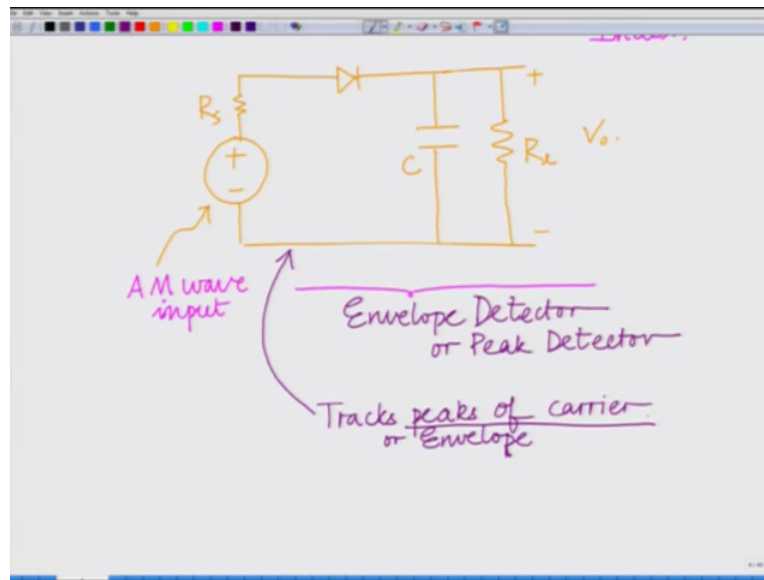 Rs
+
+
-
C
RL
Vo.
-
AM wave
input
Envelope Detector
or Peak Detector
Tracks peaks of carrier.
or Envelope